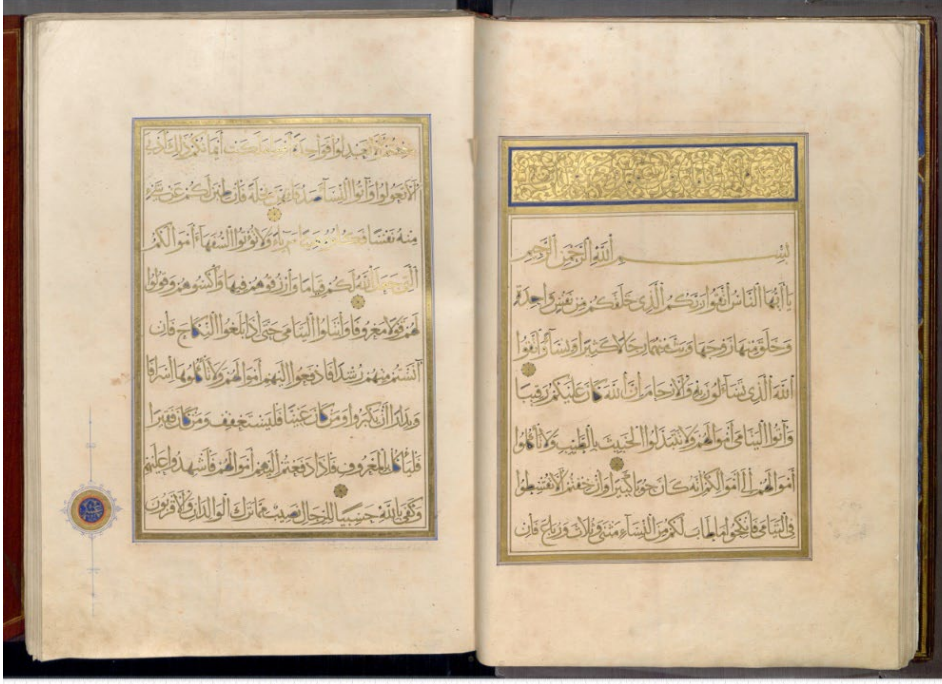 بسم الله الرحمن الرحيم
يا أيها الناس اتقوا ربكم الذي خلقكم من نفس واحدة
وخلق منها زوجها وبث منهما رجالا كثيرا ونساء واتقوا
الله الذي تساءلون به والأرحام إن الله كان عليكم رقيبا
وآتوا اليتامى أموالهم ولا تتبدلوا الخبيث بالطيب ولا تأكلوا
أموالهم إلى أموالكم إنه كان حوبا كبيرا وإن خفتم ألا تقسطوا
في اليتامى فانكحوا ما طاب لكم من النساء مثنى وثلاث ورباع فإن
خفتم ألا تعدلوا فواحدة أو ما ملكت أيمانكم ذلك أدنى
ألا تعولوا وآتوا النساء صدقاتهن نحلة فإن طبن لكم عن شيء
منه نفسا فكلوه هنيئا مريئا ولا تؤتوا السفهاء أموالكم
التي جعل الله لكم قياما وارزقوهم فيها واكسوهم وقولوا
لهم قولا معروفا وابتلوا اليتامى حتى إذا بلغوا النكاح فإن
آنستم منهم رشدا فادفعوا إليهم أموالهم ولا تأكلوها إسرافا
وبدارا أن يكبروا ومن كان غنيا فليستعفف ومن كان فقيرا
فليأكل بالمعروف فإذا دفعتم إليهم أموالهم فأشهدوا عليهم
وكفى بالله حسيبا للرجال نصيب مما ترك الوالدان والأقربون